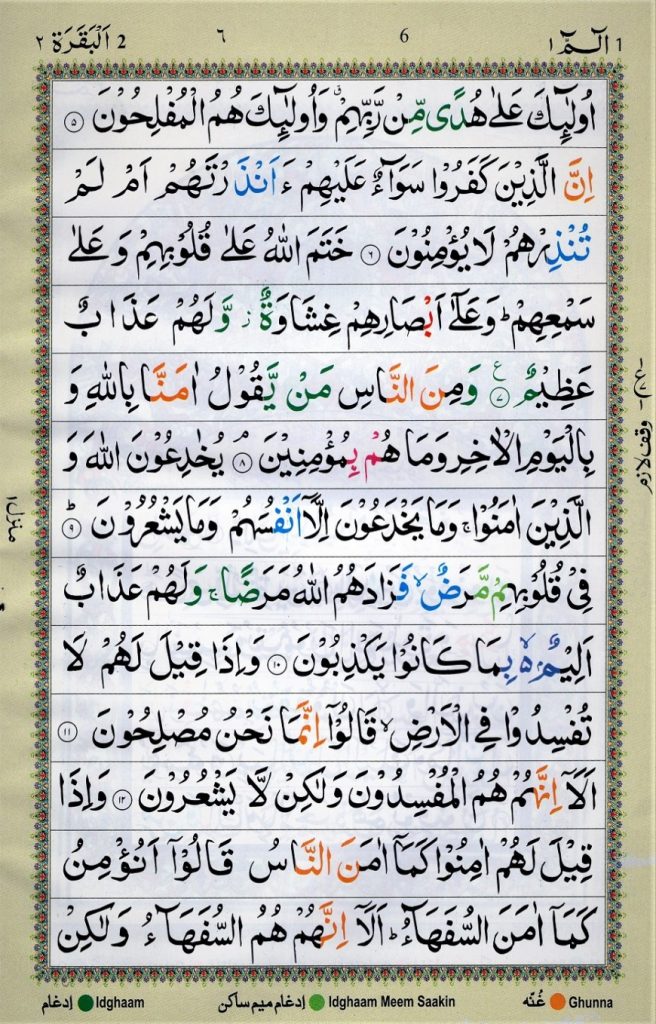 الٓمّٓ ۱ 1
6
٦
2 اَلْبَقَرَة ٢
اُولٰٓئِكَ عَلٰى هُدًى مِّنْ رَّبِّهِمْ ۗ وَاُولٰٓئِكَ هُمُ الْمُفْلِحُوْنَ ۝٥
اِنَّ الَّذِيْنَ كَفَرُوْا سَوَآءٌ عَلَيْهِمْ ءَاَنْذَرْتَهُمْ اَمْ لَمْ
تُنْذِرْهُمْ لَا يُؤْمِنُوْنَ ۝٦ خَتَمَ اللّٰهُ عَلٰى قُلُوْبِهِمْ وَعَلٰى
سَمْعِهِمْ ؕ وَعَلٰٓى اَبْصَارِهِمْ غِشَاوَةٌ ؗ وَّلَهُمْ عَذَابٌ
عَظِيْمٌ ۝٧ وَمِنَ النَّاسِ مَنْ يَّقُوْلُ اٰمَنَّا بِاللّٰهِ وَ
بِالْيَوْمِ الْاٰخِرِ وَمَا هُمْ بِمُؤْمِنِيْنَ ۝٨ۘ يُخٰدِعُوْنَ اللّٰهَ وَ
الَّذِيْنَ اٰمَنُوْا ۚ وَمَا يَخْدَعُوْنَ اِلَّآ اَنْفُسَهُمْ وَمَا يَشْعُرُوْنَ ۝٩ؕ
فِيْ قُلُوْبِهِمْ مَّرَضٌ ۙ فَزَادَهُمُ اللّٰهُ مَرَضًا ۚ وَلَهُمْ عَذَابٌ
اَلِيْمٌ ۙ۬ بِمَا كَانُوْا يَكْذِبُوْنَ ۝١٠ وَاِذَا قِيْلَ لَهُمْ لَا
تُفْسِدُوْا فِي الْاَرْضِ ۙ قَالُوْٓا اِنَّمَا نَحْنُ مُصْلِحُوْنَ ۝١١
اَلَآ اِنَّهُمْ هُمُ الْمُفْسِدُوْنَ وَلٰكِنْ لَّا يَشْعُرُوْنَ ۝١٢ وَاِذَا
قِيْلَ لَهُمْ اٰمِنُوْا كَمَآ اٰمَنَ النَّاسُ قَالُوْٓا اَنُؤْمِنُ
كَمَآ اٰمَنَ السُّفَهَآءُ ؕ اَلَآ اِنَّهُمْ هُمُ السُّفَهَآءُ وَلٰكِنْ
وقف لازم
منزل ١
Ghunna غُنّه
Idghaam Meem Saakin إدغام ميم ساكن
Idghaam إدغام